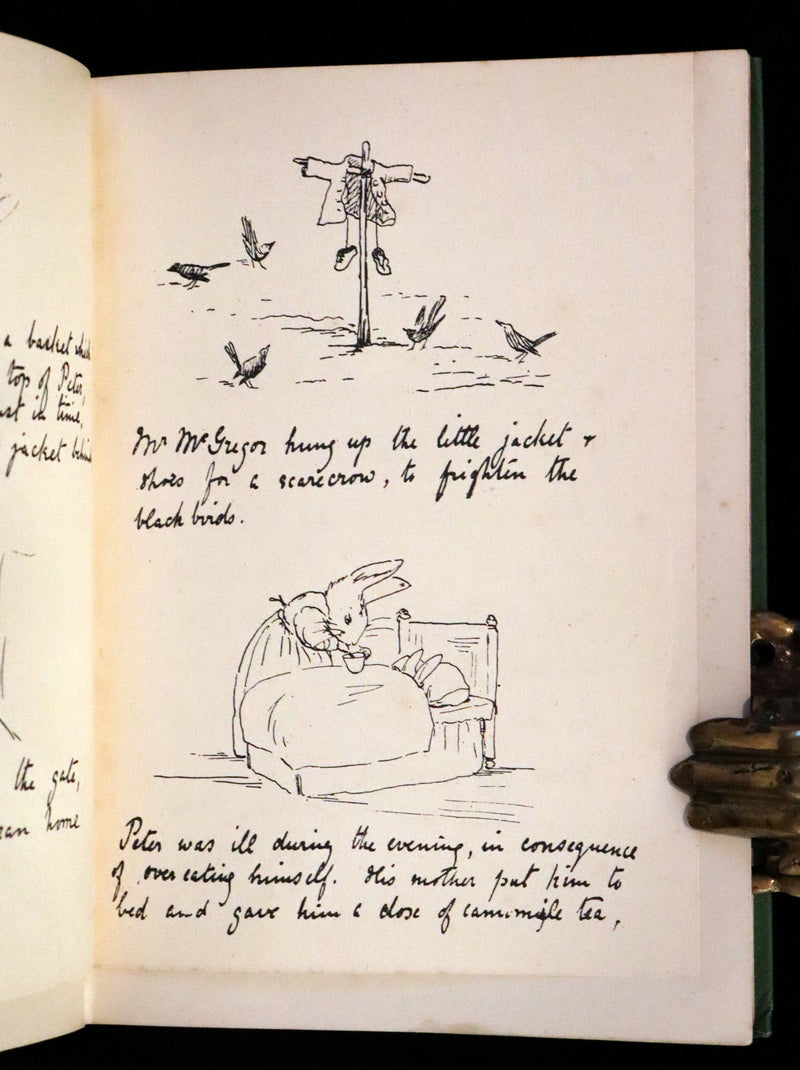 a basket which
top of Peter,
just in time,
jacket behind
the gate,
ran home
Mr McGregor hung up the little jacket &
shoes for a scarecrow, to frighten the
black birds.
Peter was ill during the evening, in consequence
of over eating himself. His mother put him to
bed and gave him a dose of camomile tea,